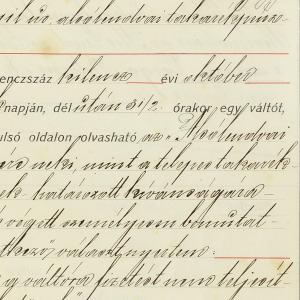 alsólendvai takarékpénz-
enczszáz kilencz évi október
napján, délután 3 1/2 órakor egy váltót,
ulsó oldalon olvasható az "Alsólendvai
neki, mint a telepes takarék
ek határozott kivánságára -
végett személyesen bemutat-
választ nyertem:
a váltóra fizetést nem teljesit-